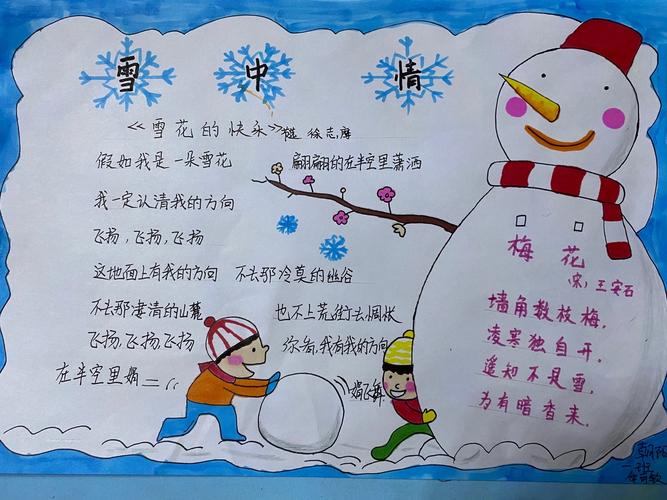 雪中情
《雪花的快乐》 徐志摩
假如我是一朵雪花 翩翩的在半空里潇洒
我一定认清我的方向
飞扬,飞扬,飞扬
这地面上有我的方向 不去那冷莫的幽谷
不去那凄清的山麓 也不上荒街去惆怅
飞扬,飞扬,飞扬 你看,我有我的方向
在半空里娟二 娟飞舞
梅花
宋:王安石
墙角数枝梅,
凌寒独自开.
遥知不是雪,
为有暗香来.
一班